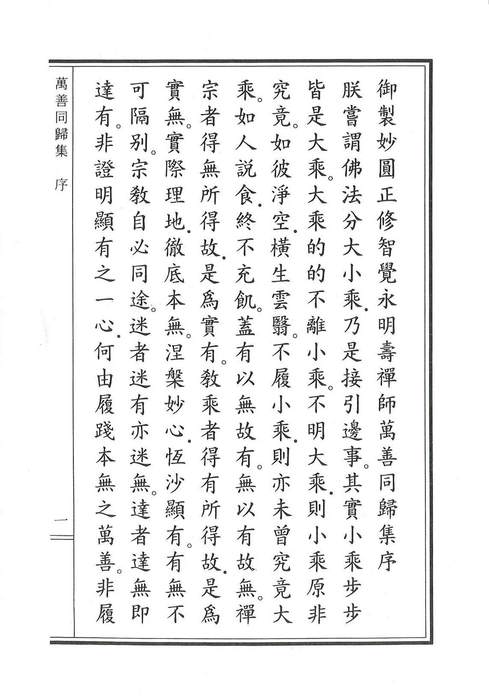 御製妙圓正修智覺永明壽禪師萬善同歸集序
朕嘗謂佛法分大小乘．乃是接引邊事。其實小乘步步
皆是大乘。大乘的的不離小乘。不明大乘．則小乘原非
究竟。如彼淨空．橫生雲翳。不履小乘．則亦未曾究竟大
乘。如人說食．終不充飢。蓋有以無故有。無以有故無。禪
宗者得無所得故．是爲實有。敎乘者得有所得故．是爲
實無。實際理地．徹底本無。涅槃妙心．恆沙顯有。有無不
可隔別。宗敎自必同途。迷者迷有亦迷無。達者達無即
達有。非證明顯有之一心．何由履踐本無之萬善。非履
萬善同歸集　序
一